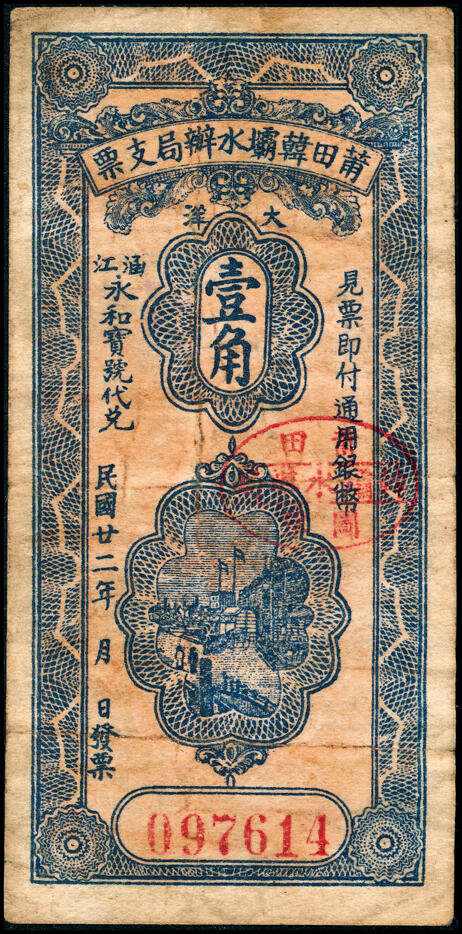 莆田韓壩水辦局支票
大洋
壹角
見票即付通用銀幣
涵江永和寶號代兌
民國廿二年 月 日發票
097614